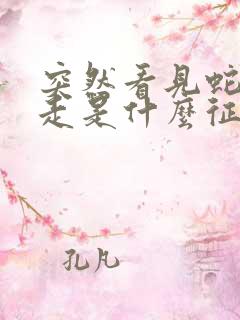 突然看見蛇
走是什麼征
孔凡